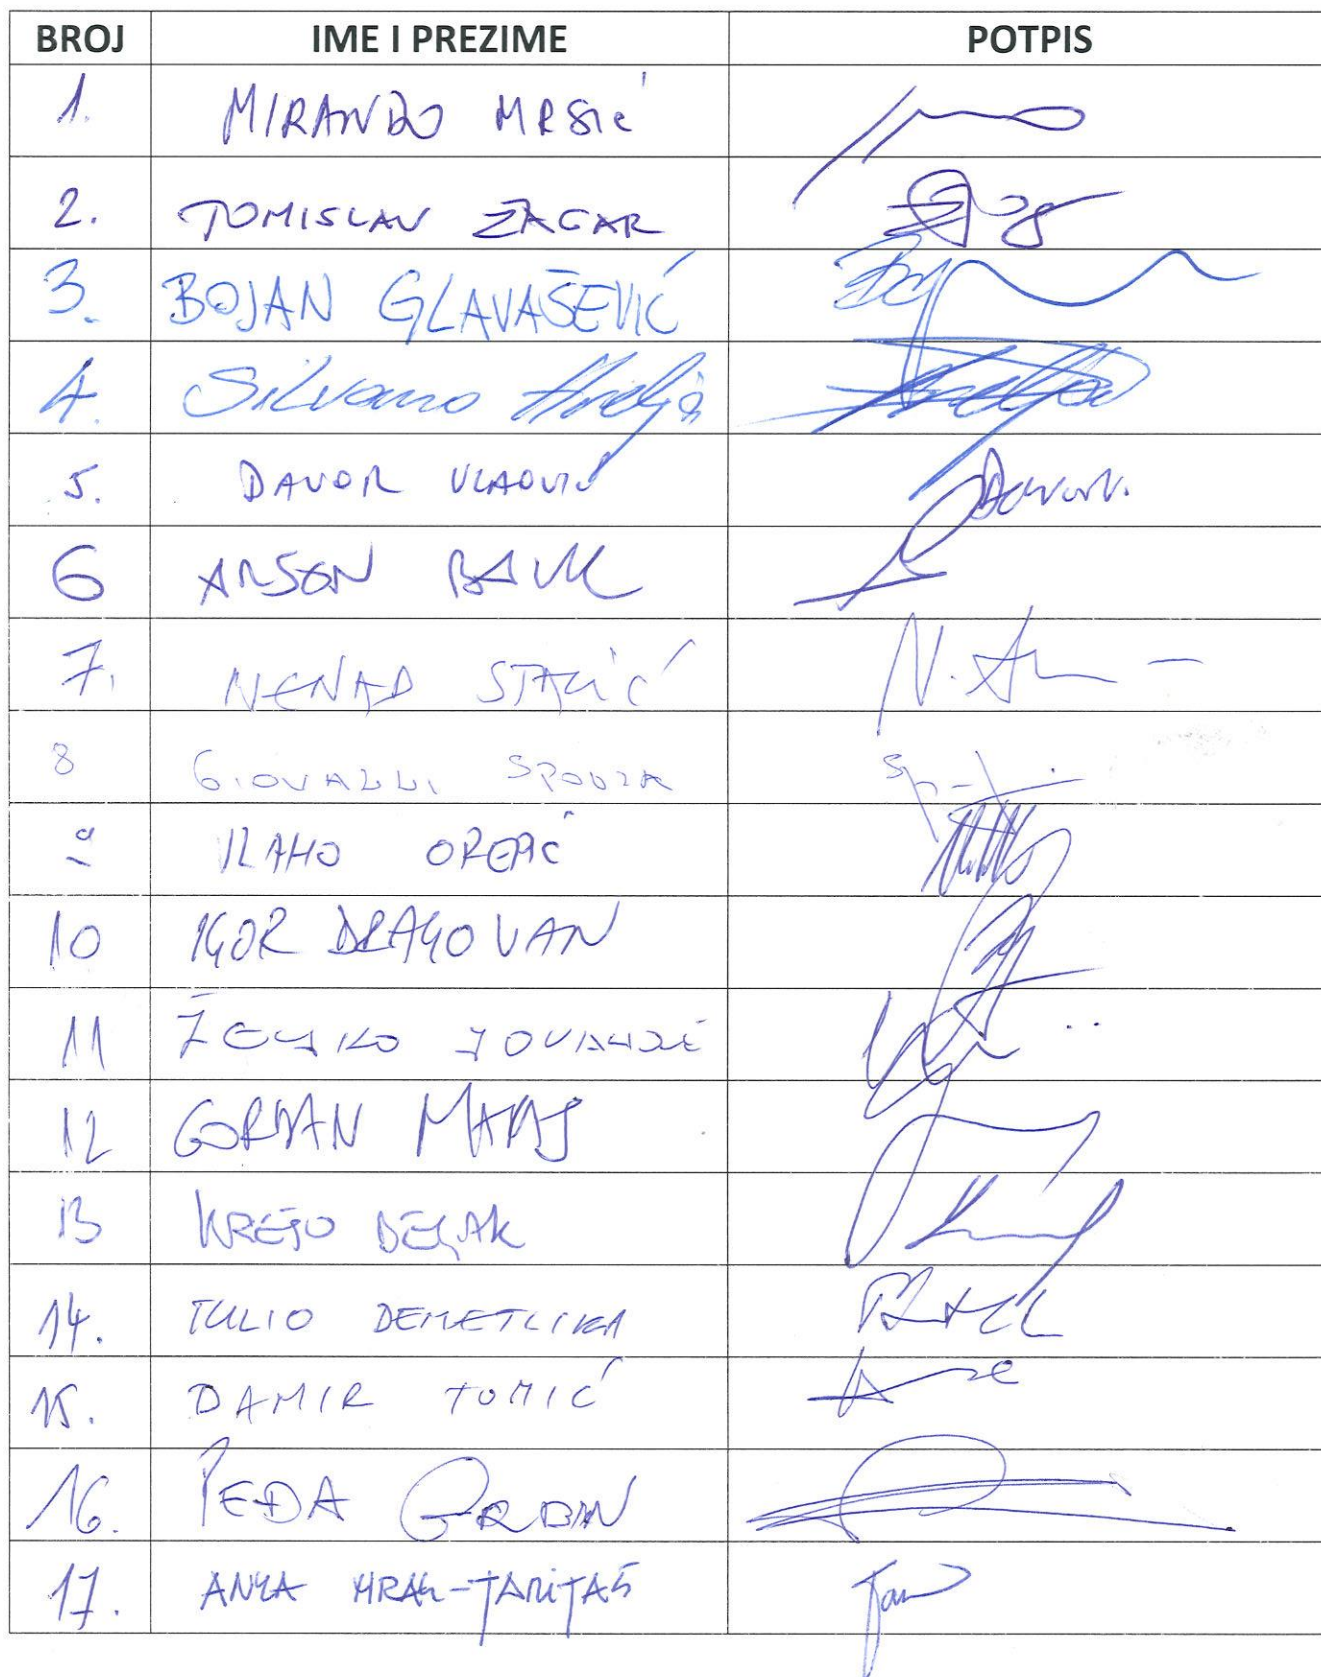 BROJ IME I PREZIME POTPIS
1. MIRANDO MRSIĆ
2. TOMISLAV ŽAGAR
3. BOJAN GLAVAŠEVIĆ
4. Silvano Hrelja
5. DAVOR VLAOVIĆ
6 ARSEN BAUK
7. NENAD STAZIĆ
8 GIOVANNI SPONZA
9 VLAHO OREPIĆ
10 IGOR DRAGOVAN
11 ŽELJKO JOVANOVIĆ
12 GORDAN MARAS
13 KREŠO BELJAK
14. TULIO DEMETLIKA
15. DAMIR TOMIĆ
16. PEĐA GRBIN
17. ANKA MRAK-TARITAŠ